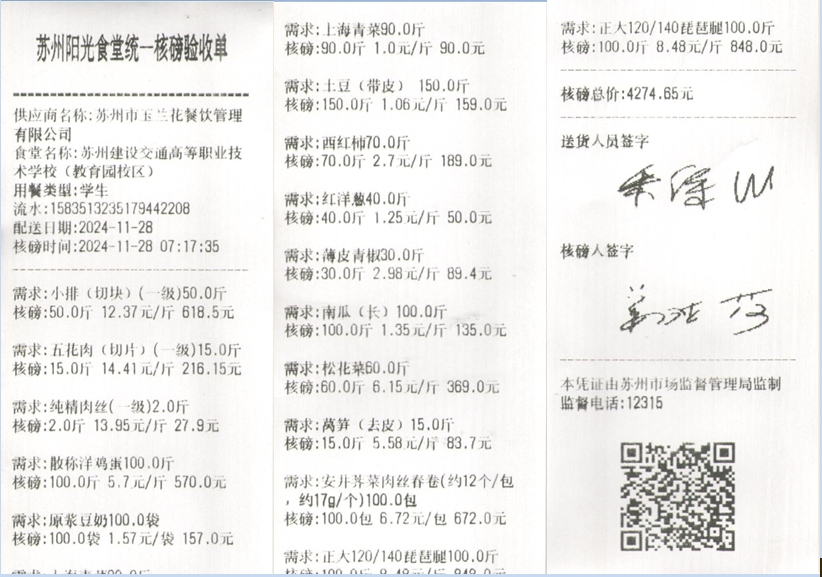 苏州阳光食堂统一核磅验收单
供应商名称:苏州市玉兰花餐饮管理
有限公司
食堂名称:苏州建设交通高等职业技
术学校（教育园校区）
用餐类型:学生
流水:1583513235179442208
配送日期:2024-11-28
核磅时间:2024-11-28 07:17:35
需求:小排（切块）(一级)50.0斤
核磅:50.0斤 12.37元/斤 618.5元
需求:五花肉（切片）(一级)15.0斤
核磅:15.0斤 14.41元/斤 216.15元
需求:纯精肉丝(一级)2.0斤
核磅:2.0斤 13.95元/斤 27.9元
需求:散称洋鸡蛋100.0斤
核磅:100.0斤 5.7元/斤 570.0元
需求:原浆豆奶100.0袋
核磅:100.0袋 1.57元/袋 157.0元
需求:上海青菜90.0斤
核磅:90.0斤 1.0元/斤 90.0元
需求:土豆（带皮） 150.0斤
核磅:150.0斤 1.06元/斤 159.0元
需求:西红柿70.0斤
核磅:70.0斤 2.7元/斤 189.0元
需求:红洋葱40.0斤
核磅:40.0斤 1.25元/斤 50.0元
需求:薄皮青椒30.0斤
核磅:30.0斤 2.98元/斤 89.4元
需求:南瓜（长）100.0斤
核磅:100.0斤 1.35元/斤 135.0元
需求:松花菜60.0斤
核磅:60.0斤 6.15元/斤 369.0元
需求:莴笋（去皮）15.0斤
核磅:15.0斤 5.58元/斤 83.7元
需求:安井荠菜肉丝春卷(约12个/包
，约17g/个)100.0包
核磅:100.0包 6.72元/包 672.0元
需求:正大120/140琵琶腿100.0斤
核磅:100.0斤 8.48元/斤 848.0元
需求:正大120/140琵琶腿100.0斤
核磅:100.0斤 8.48元/斤 848.0元
核磅总价:4274.65元
送货人员签字
核磅人签字
本凭证由苏州市场监督管理局监制
监督电话:12315